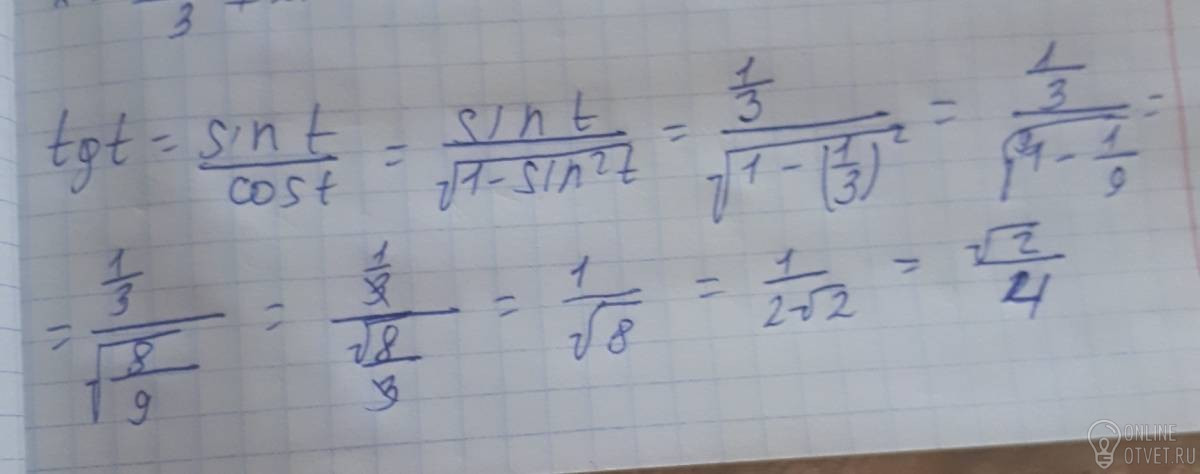 3
tgt = sin t / cos t = sin t / √1-sin²t = 1/3 / √1-(1/3)² = 1/3 / √1-1/9 =
= 1/3 / √8/9 = 1/3 / √8/3 = 1/√8 = 1/2√2 = √2/4
ONLINE
OTVET.RU